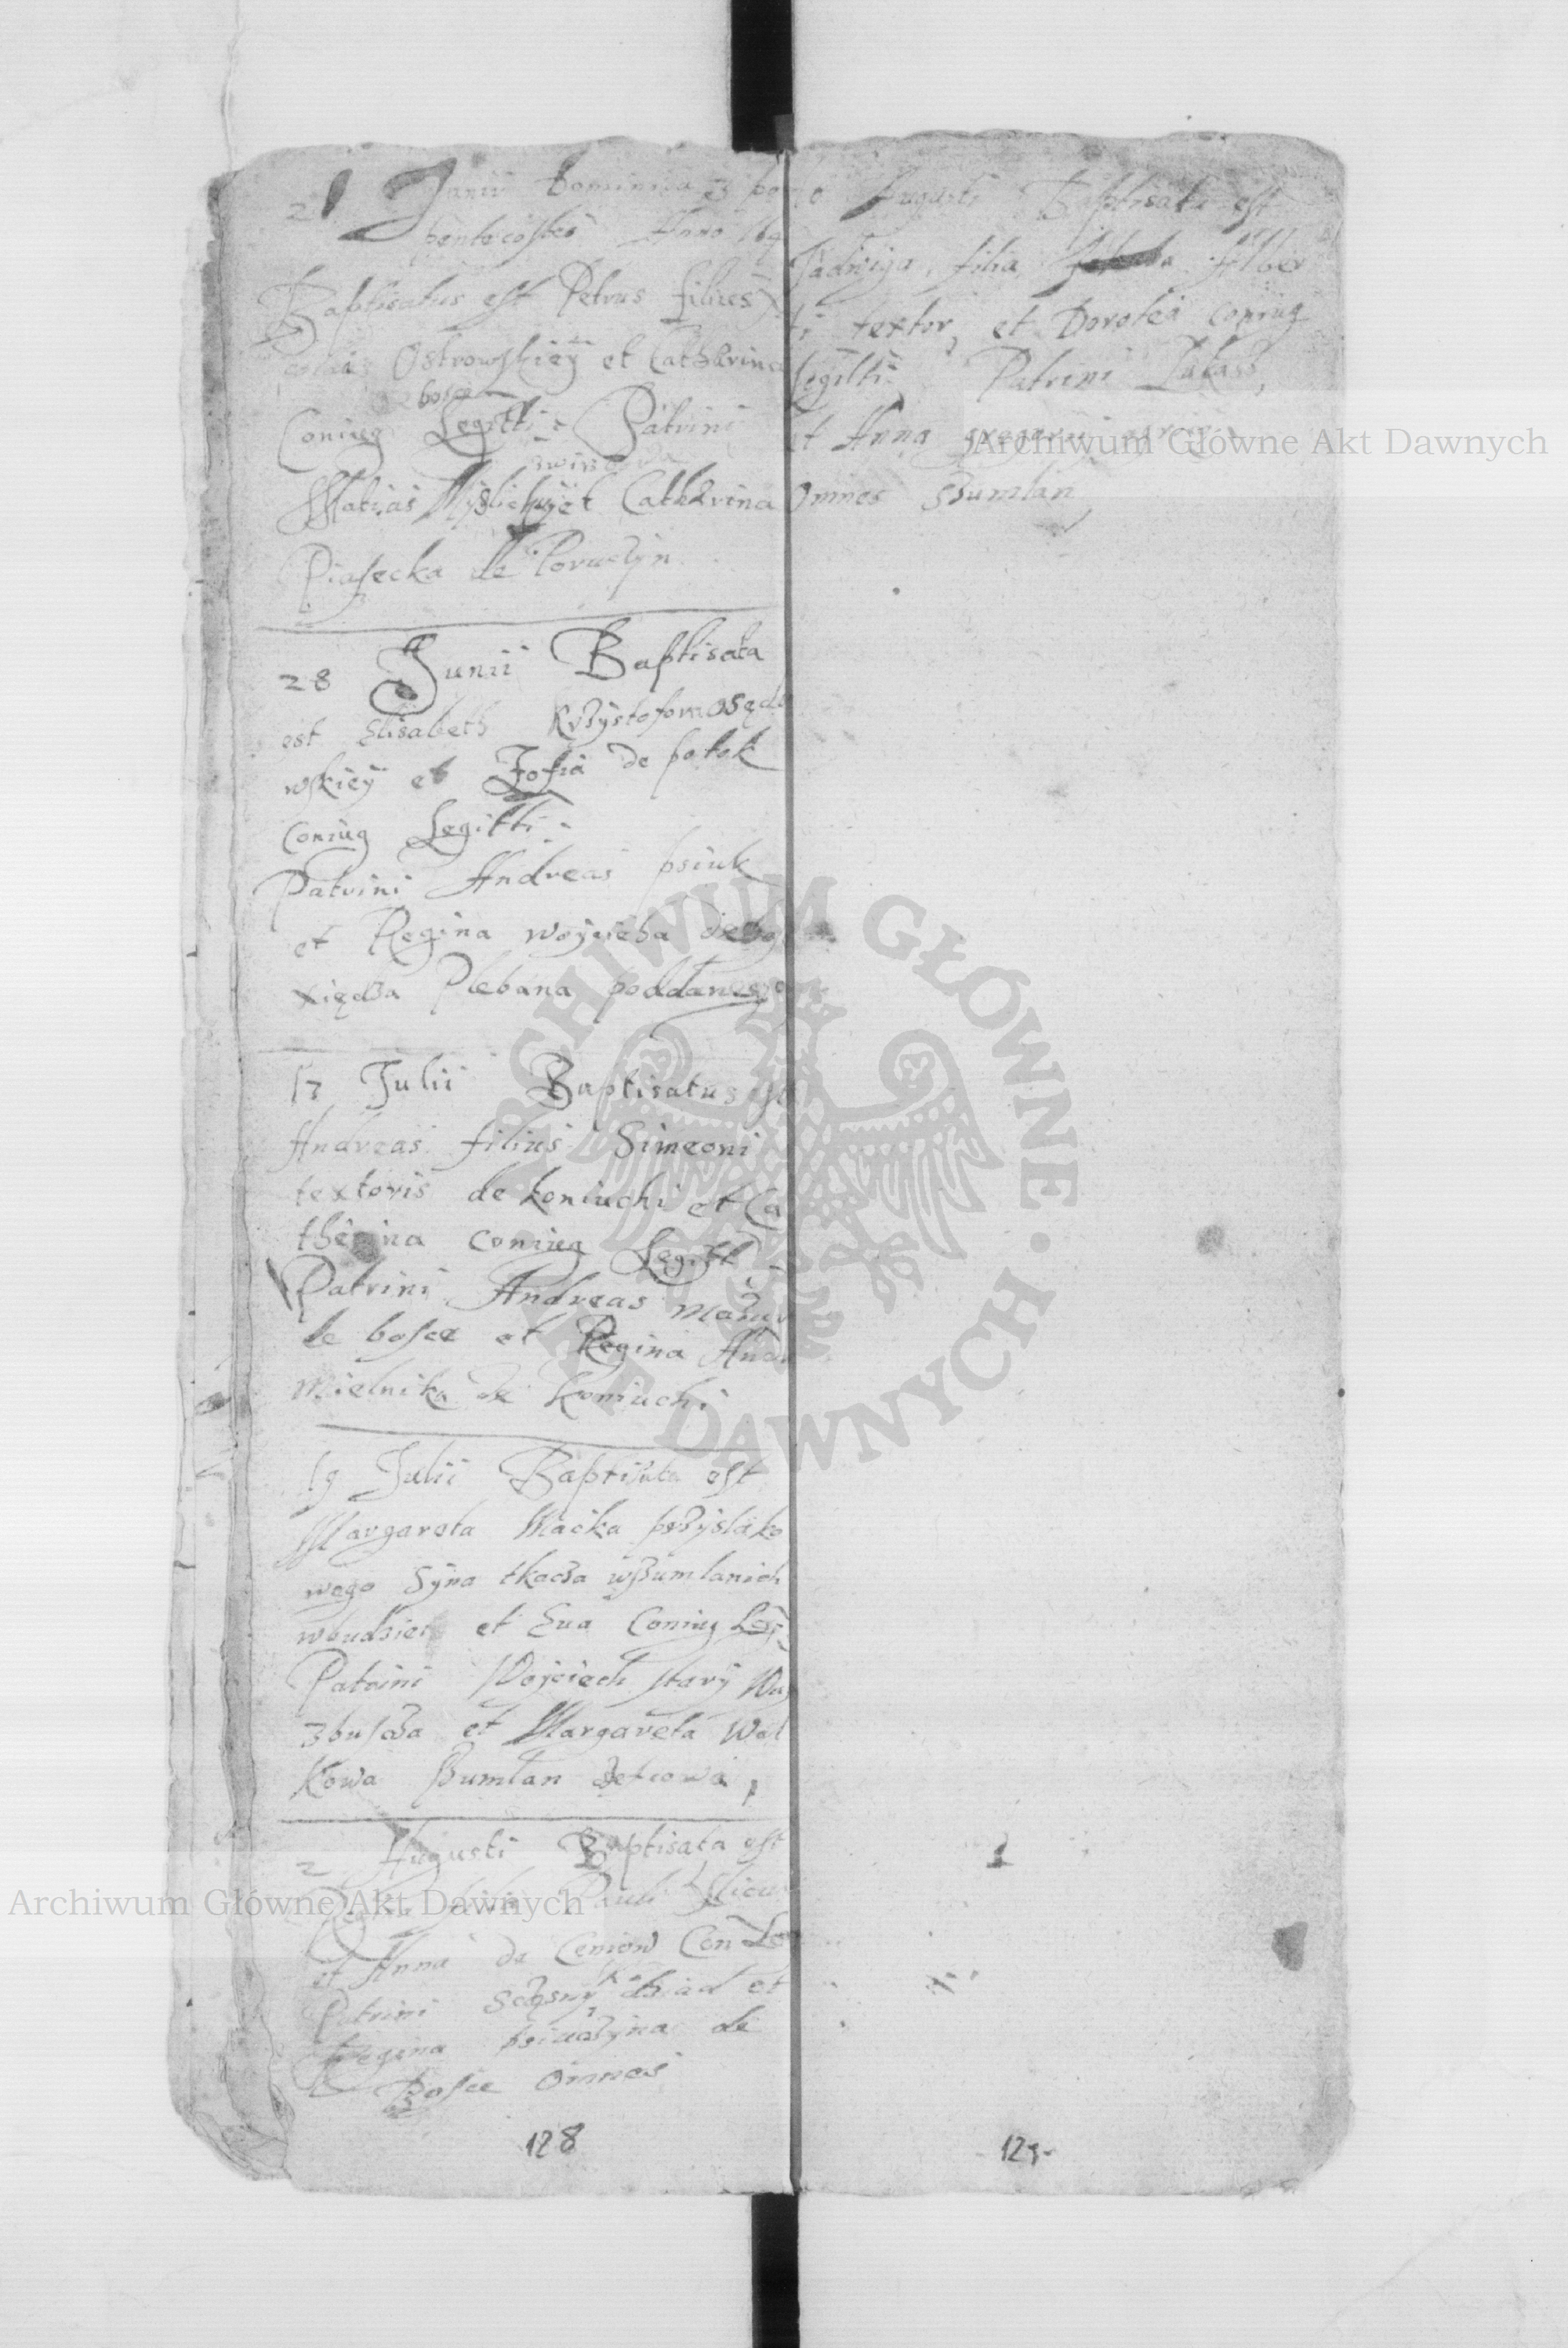 21 Junii Dominica 3 po
pentecostes Anno 169
Baptisatus est Petrus filius
Ostrowskieÿ et Catherina
bosce
Coniug Legitti: Patrini
Matias Mÿslichÿ et Catherina
Piasecka de Poruczÿn
28 Junii Baptisata
est Elisabeth Krzÿstofom Osędo
wskieÿ et Zofia de potok
Coniug Legitti:
Patrini Andreas psiuk
et Regina woÿciecha
xiędza Plebana poddanego
17 Julii Baptisatus est
Andreas filius Simeoni
textoris de koniuchi et Ca
therina coniug Legitt
Patrini Andreas mazur
de bosce et Regina
Mielnika de koniuchi
19 Julii Baptisata est
Margareta Macka przÿslako
wego Sÿna tkacza wszumlanich
et Eua Coniug Leg:
Patrini Wojciech starÿ
et Margareta Wol
kowa Szumlan
2 Augusti Baptisata est
Regina filia Pauli
et Anna de Ceniow Con Le
Patrini Sczęsnÿ dziad et
Regina psiuczÿna de
Bosce Omnes
128
Augusti Baptisata est
Jadwiga filia Alber
ti textor, et Dorotea coniug
legitti: Patrini Lukasz,
et Anna gregorii
Omnes Szumlan
129
Archiwum Główne Akt Dawnych
Archiwum Główne Akt Dawnych
ARCHIWUM GŁÓWNE AKT DAWNYCH